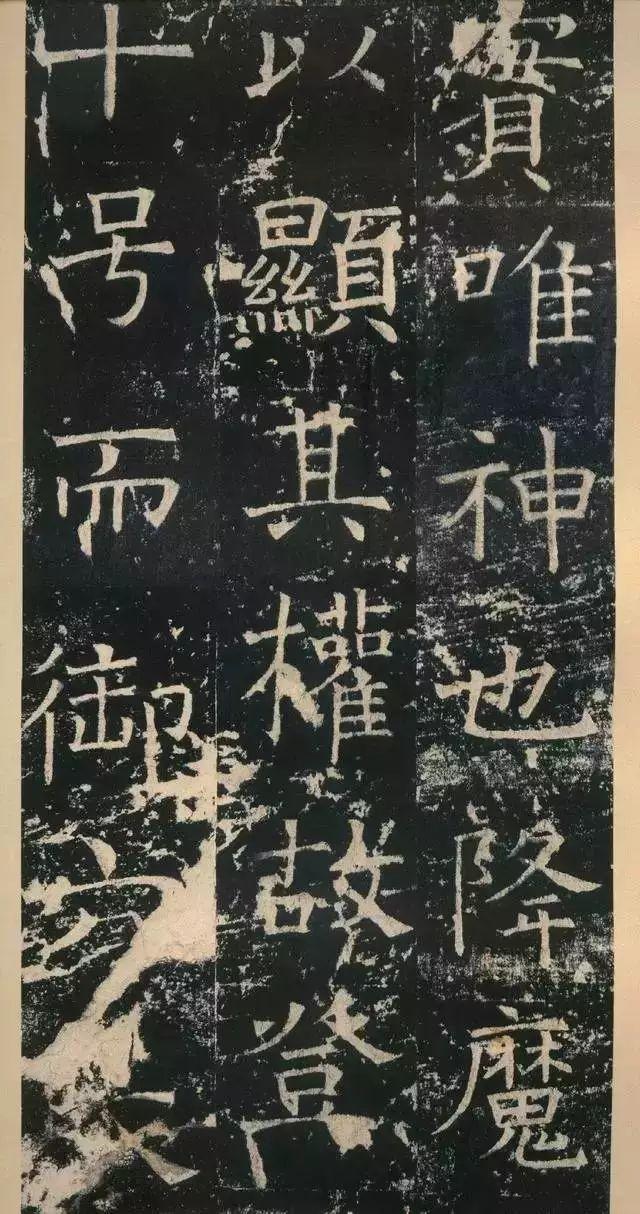 唯神也降魔
以顯其權故登
十号而御六